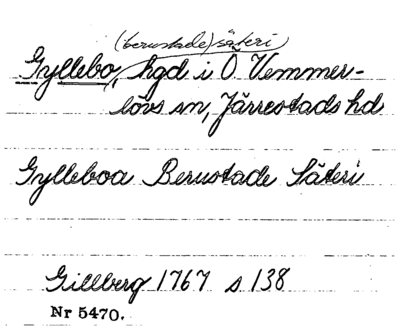 (berustade) säteri
Gyllebo, hgd i Ö Vemmer-
lövs sn, Järrestads hd
Gylleboa Berustade Säteri
Gillberg 1767 s 138
Nr 5470.